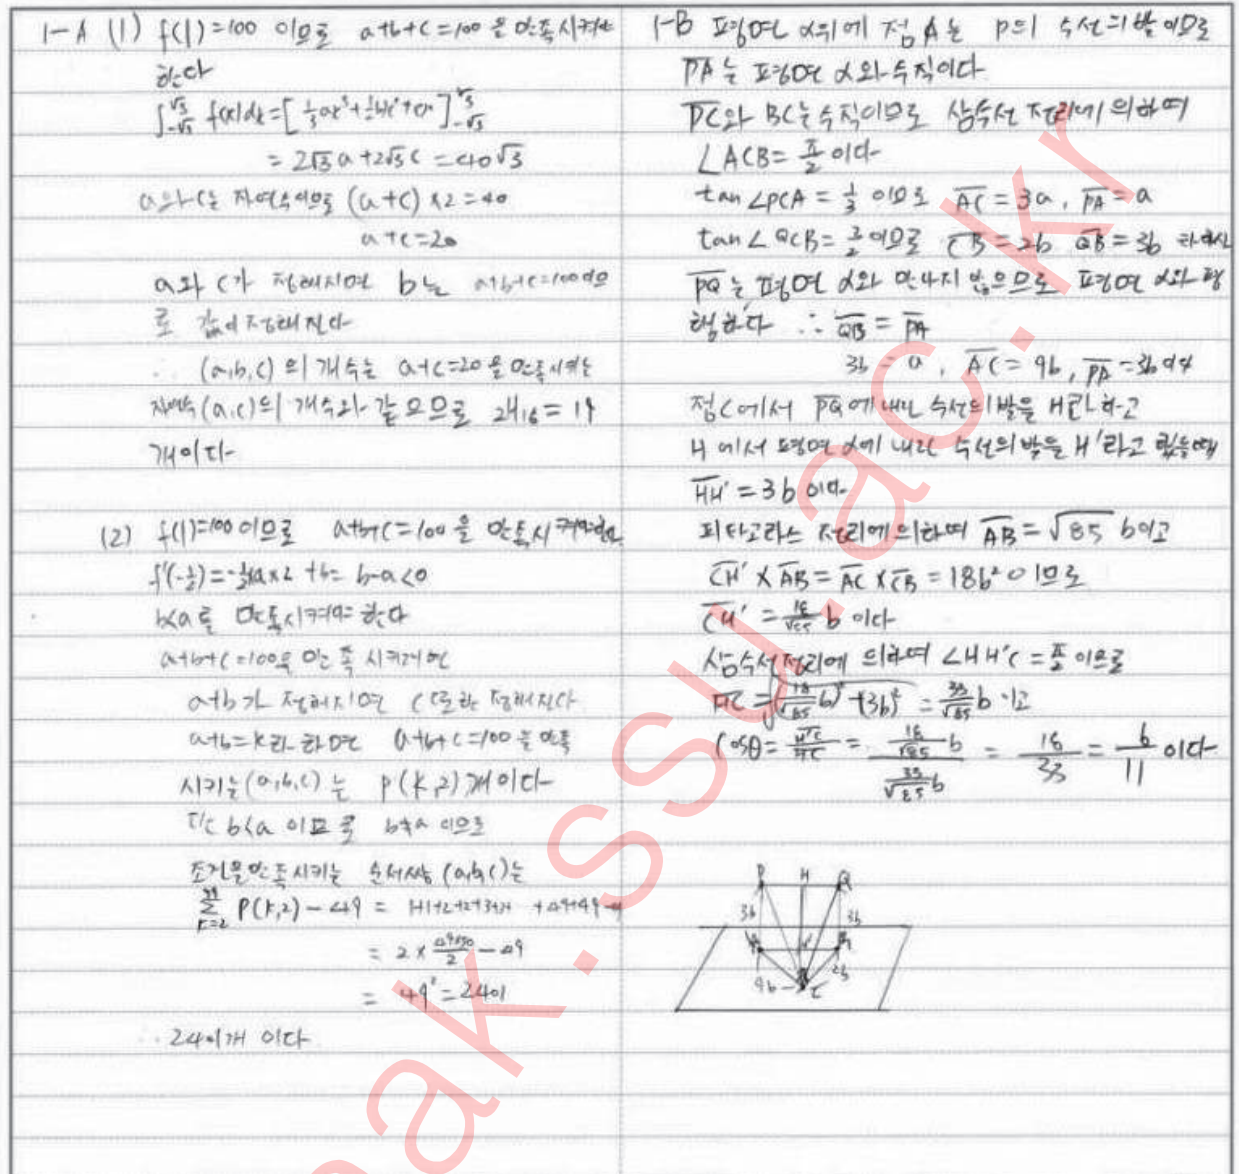 1-A (1) f(1)=100 이므로 a+b+c=100 을 만족시켜야
한다
∫_{-√3}^{√3} f(x)dx=[⅓ax³+½bx²+cx]_{-√3}^{√3}
= 2√3a+2√3c = 40√3
a와 c는 자연수이므로 (a+c)×2=40
a+c=20
a와 c가 정해지면 b는 a+b+c=100이므
로 값이 정해진다
∴ (a,b,c)의 개수는 a+c=20을 만족시키는
자연수(a,c)의 개수와 같으므로 ₂H₁₈ = 19
개이다
(2) f(1)=100이므로 a+b+c=100을
f'(-½)=-½×a×2+b= b-a<0
b<a를 만족시켜야 한다
a+b+c=100을 만족시키려면
a+b가 정해지면 c 또한 정해진다
a+b=k라 하면 a+b+c=100을 만족
시키는(a,b,c)는 P(k,2)개이다
b<a 이므로 b≠a 이므로
조건을만족시키는 순서쌍 (a,b,c)는
P(k,2)-49 = 1+1+2+2+3+3+ +49+49-
= 2×\frac{49×50}{2}-49
= 49²=2401
∴ 2401개 이다
1-B 평면 α위에 점 A는 P의 수선의 발이므로
PA는 평면 α와 수직이다
PC와 BC는 수직이므로 삼수선 정리에 의하여
∠ACB=\frac{π}{2}이다
tan∠PCA = ⅓ 이므로 AC=3a, PA=a
tan∠QCB=\frac{3}{2}이므로 CB=2b QB=3b
PQ는 평면 α와 만나지 않으므로 평면 α와 평
행하다 ∴ QB=PA
3b = a, AC=9b, PA=3b
점C에서 PQ에 내린 수선의발을 H라 하고
H에서 평면 α에 내린 수선의발을 H'라고 했을때
HH'=3b이다
피타고라스 정리에의하여 AB=√85 b이고
CH'×AB=AC×CB=18b²이므로
CH'=\frac{18}{√85}b 이다
삼수선정리에 의하여 ∠HH'C=\frac{π}{2}이므로
HC=√((\frac{18}{√85}b)²+(3b)²)=\frac{33}{√85}b이고
cosθ=\frac{H'C}{HC}=\frac{\frac{18}{√85}b}{\frac{33}{√85}b}=\frac{18}{33}=\frac{6}{11} 이다
P H Q
3b 3b
A H' B
9b C 2b
ak.ssu.ac.kr